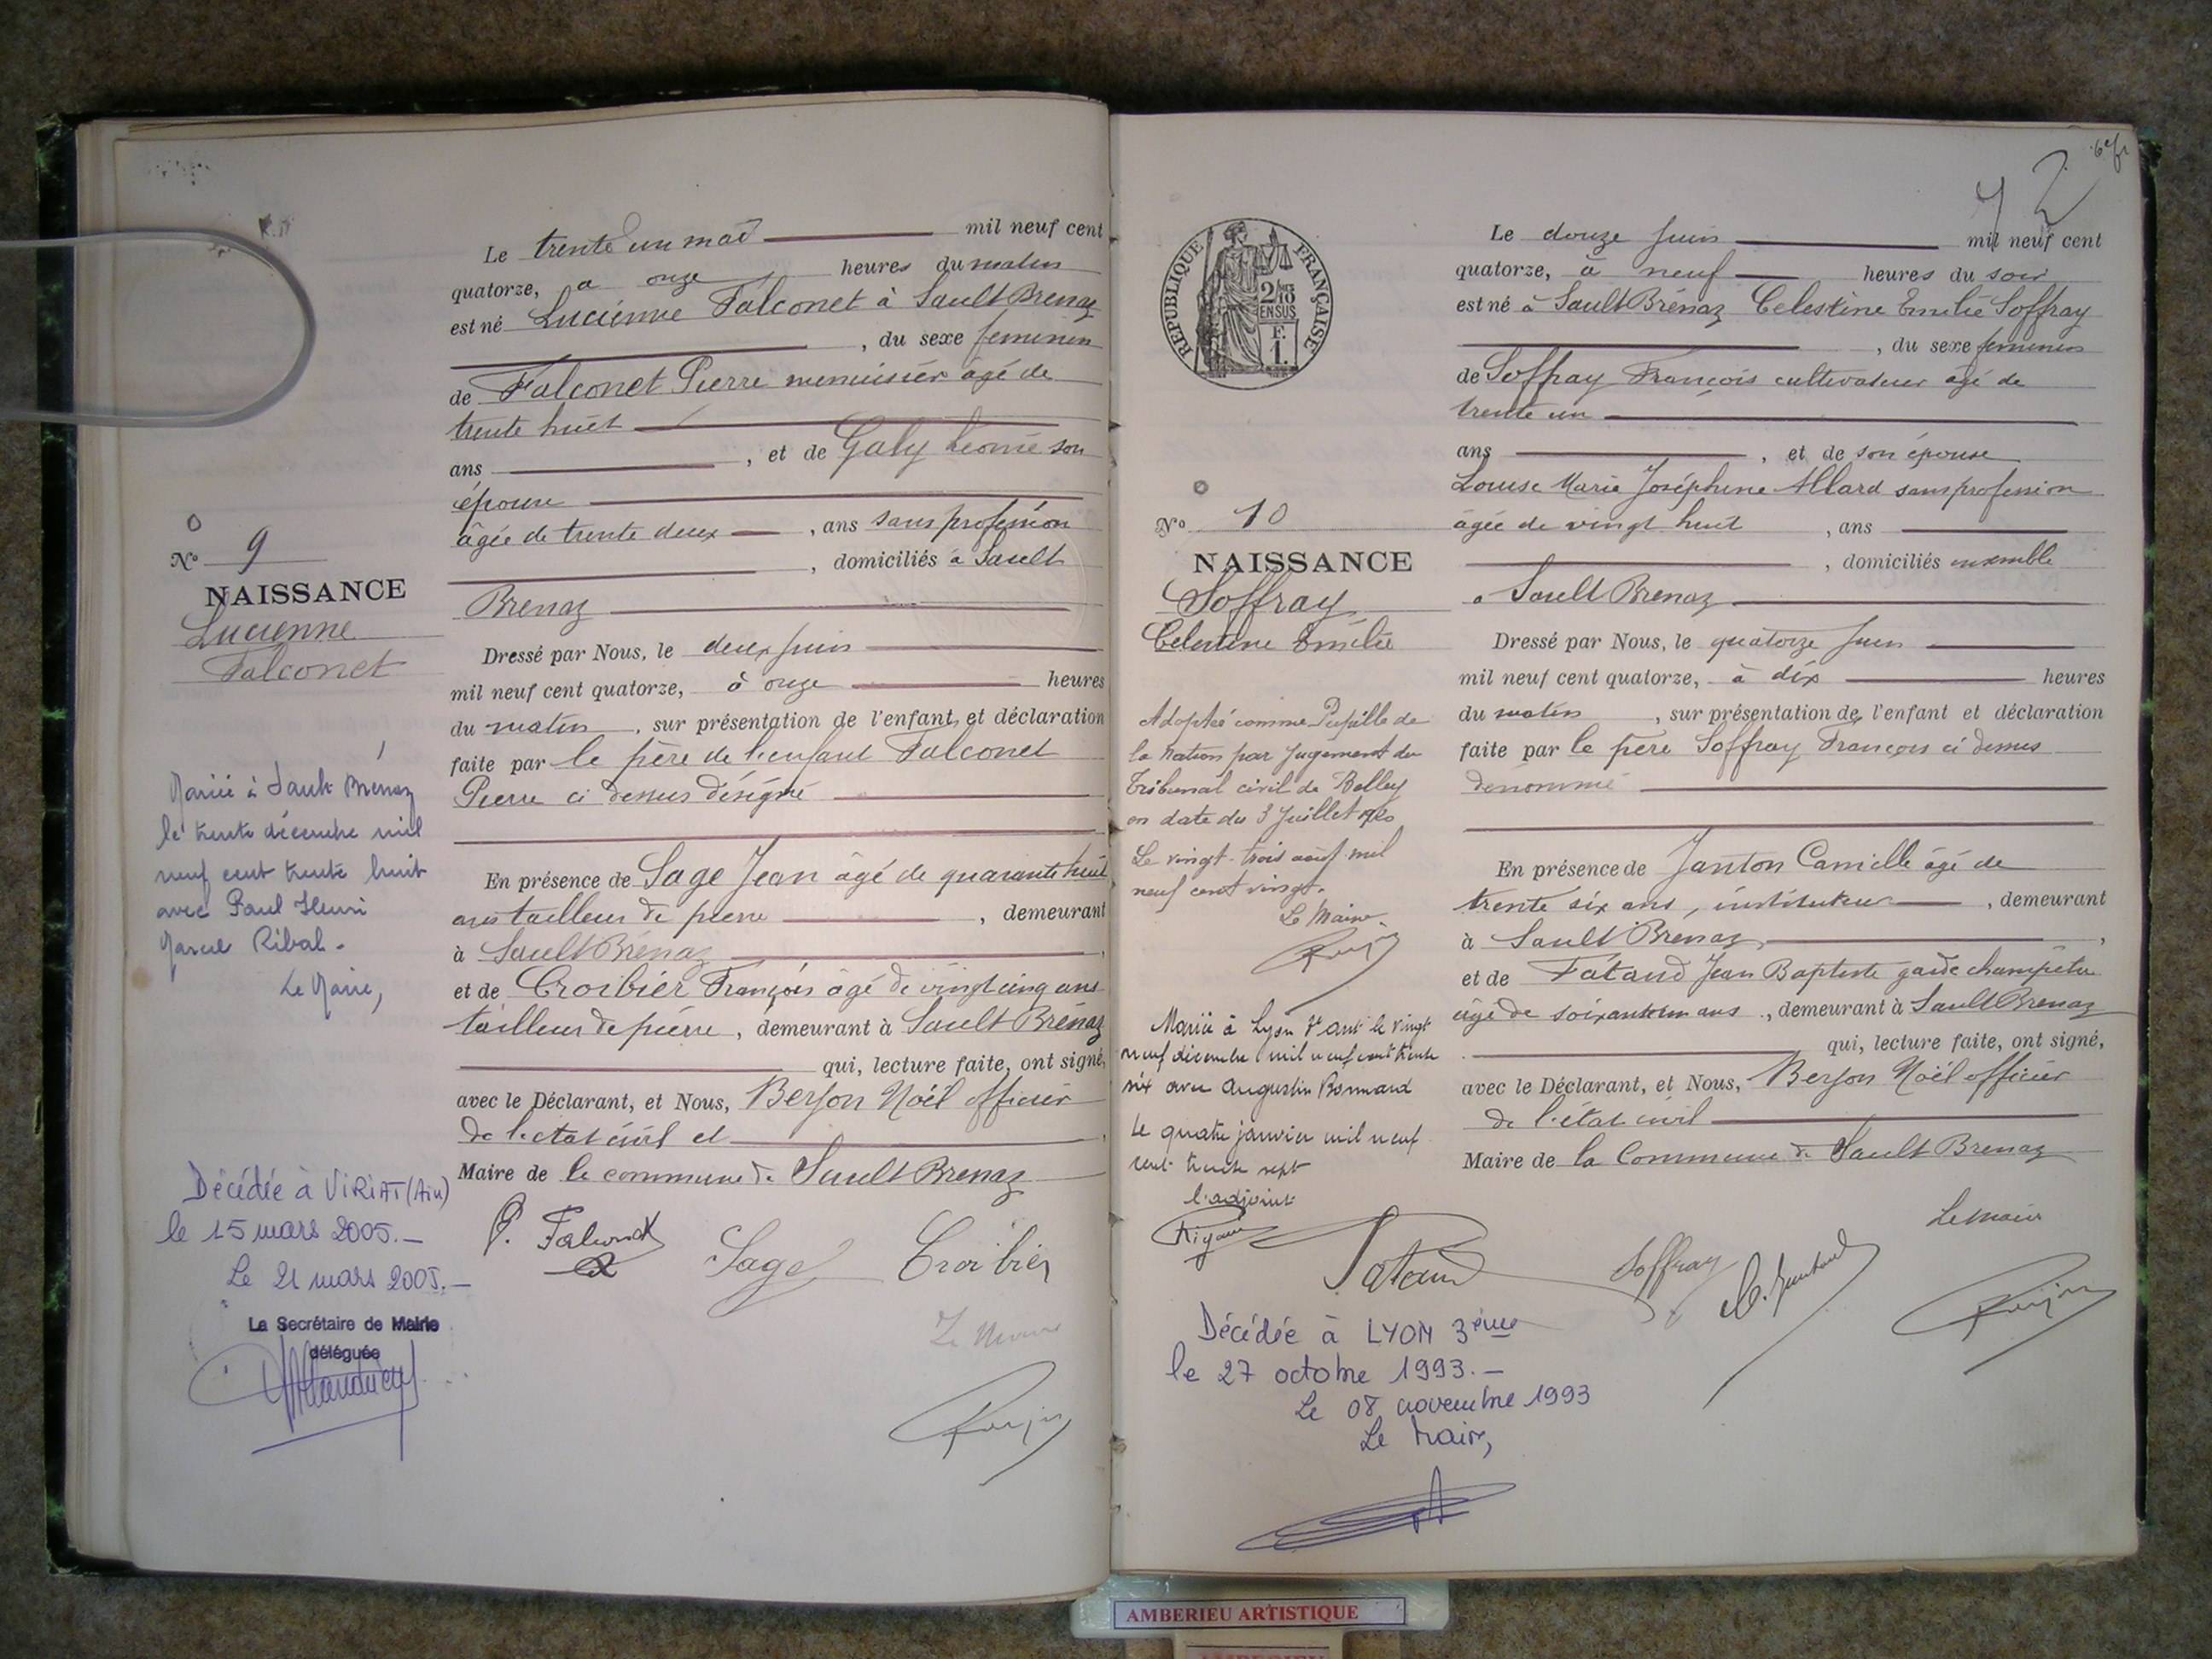 Le trente un mai mil neuf cent
quatorze, a onze heures du matin
est né Lucienne Falconet à Sault Brenaz
, du sexe feminin
de Falconet Pierre menuisier âgé de
trente huit
ans , et de Galy Léonie son
épouse
âgée de trente deux , ans sans profession
, domiciliés à Sault
Brenaz
Dressé par Nous, le deux juin
mil neuf cent quatorze, à onze heures
du matin , sur présentation de l'enfant et déclaration
faite par le père de l'enfant Falconet
Pierre ci dessus désigné
En présence de Sage Jean âgé de quarante huit
ans tailleur de pierre , demeurant
à Sault Brénaz ,
et de Croibier François âgé de vingt cinq ans
tailleur de pierre , demeurant à Sault Brénaz
qui, lecture faite, ont signé,
avec le Déclarant, et Nous, Berjon Noël officier
de l'etat civil et
Maire de la commune de Sault Brenaz
Sage Croibier
Le Maire
N° 9
NAISSANCE
Lucienne
Falconet
Mariée à Sault Brénaz
le trente décembre mil
neuf cent trente huit
avec Paul Henri
Marcel Ribal.
Le Maire,
Décédée à VIRIAT (Ain)
le 15 mars 2005.-
Le 21 mars 2005.-
La Secrétaire de Mairie
déléguée
REPUBLIQUE FRANÇAISE
2/10
EN SUS
F.
1.
Le douze juin mil neuf cent
quatorze, à neuf heures du soir
est né à Sault Brénaz Celestine Emilie Soffray
, du sexe feminin
de Soffray François cultivateur âgé de
trente un
ans , et de son épouse
Louise Marie Joséphine Allard sans profession
âgée de vingt huit , ans
, domiciliés ensemble
a Sault Brenaz
Dressé par Nous, le quatorze juin
mil neuf cent quatorze, à dix heures
du matin , sur présentation de l'enfant et déclaration
faite par le père Soffray François ci dessus
denommé
En présence de Janton Camille âgé de
trente six ans, instituteur , demeurant
à Sault Brenaz ,
et de Fataud Jean Baptiste garde champêtre
âgé de soixante un ans , demeurant à Sault Brenaz
qui, lecture faite, ont signé,
avec le Déclarant, et Nous, Berjon Noël officier
de l'état civil
Maire de la Commune de Sault Brenaz
Le maire
Fataud Soffray
N° 10
NAISSANCE
Soffray
Celestine Emilie
Adoptée comme Pupille de
la Nation par jugement du
Tribunal civil de Belley
en date du 3 Juillet 1920
Le vingt-trois août mil
neuf cent vingt.
Le Maire
Mariée à Lyon le vingt
neuf décembre mil neuf cent trente
six avec Augustin Bonnard
Le quatre janvier mil neuf
cent trente sept
l'adjoint
Décédée à LYON 3ème
le 27 octobre 1993.-
Le 08 novembre 1993
Le Maire,
AMBERIEU ARTISTIQUE
AMBERIEU